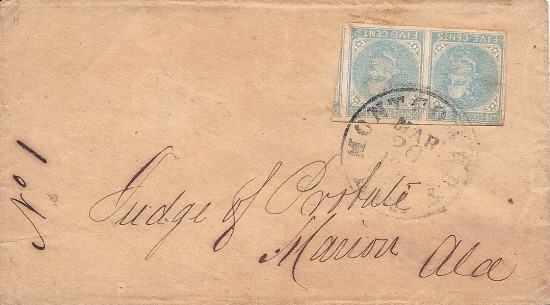 FIVE CENTS FIVE CENTS
MAR
20
No 1
Judge of Probate
Marion Ala